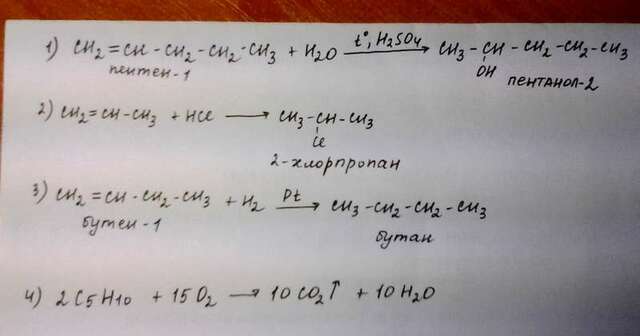 1) CH2=CH-CH2-CH2-CH3 + H2O t°, H2SO4 → CH3-CH-CH2-CH2-CH3
OH
пентен-1 пентанол-2
2) CH2=CH-CH3 + HCl → CH3-CH-CH3
Cl
2-хлорпропан
3) CH2=CH-CH2-CH3 + H2 Pt → CH3-CH2-CH2-CH3
бутен-1 бутан
4) 2C5H10 + 15O2 → 10CO2↑ + 10H2O